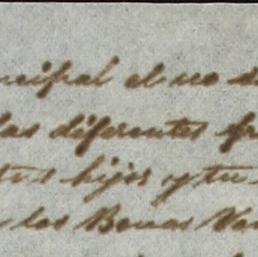 ncipal el uso d
las diferentes fr
tus hijos y tu
y los Bonas Va